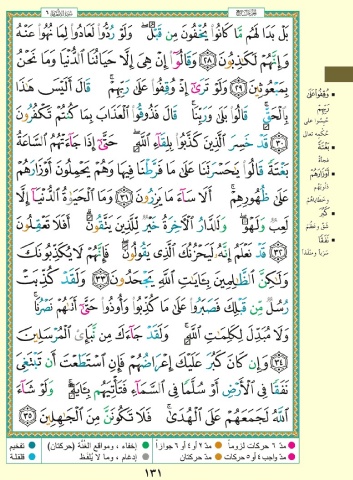 بَلْ بَدَا لَهُم مَّا كَانُوا۟ يُخْفُونَ مِن قَبْلُ ۖ وَلَوْ رُدُّوا۟ لَعَادُوا۟ لِمَا نُهُوا۟ عَنْهُ
وَإِنَّهُمْ لَكَـٰذِبُونَ ٢٨ وَقَالُوٓا۟ إِنْ هِىَ إِلَّا حَيَاتُنَا ٱلدُّنْيَا وَمَا نَحْنُ
بِمَبْعُوثِينَ ٢٩ وَلَوْ تَرَىٰٓ إِذْ وُقِفُوا۟ عَلَىٰ رَبِّهِمْ ۚ قَالَ أَلَيْسَ هَـٰذَا
بِٱلْحَقِّ ۚ قَالُوا۟ بَلَىٰ وَرَبِّنَا ۚ قَالَ فَذُوقُوا۟ ٱلْعَذَابَ بِمَا كُنتُمْ تَكْفُرُونَ
٣٠ قَدْ خَسِرَ ٱلَّذِينَ كَذَّبُوا۟ بِلِقَآءِ ٱللَّهِ ۖ حَتَّىٰٓ إِذَا جَآءَتْهُمُ ٱلسَّاعَةُ
بَغْتَةً قَالُوا۟ يَـٰحَسْرَتَنَا عَلَىٰ مَا فَرَّطْنَا فِيهَا وَهُمْ يَحْمِلُونَ أَوْزَارَهُمْ
عَلَىٰ ظُهُورِهِمْ ۚ أَلَا سَآءَ مَا يَزِرُونَ ٣١ وَمَا ٱلْحَيَوٰةُ ٱلدُّنْيَآ إِلَّا
لَعِبٌ وَلَهْوٌ ۖ وَلَلدَّارُ ٱلْـَٔاخِرَةُ خَيْرٌ لِّلَّذِينَ يَتَّقُونَ ۗ أَفَلَا تَعْقِلُونَ
٣٢ قَدْ نَعْلَمُ إِنَّهُۥ لَيَحْزُنُكَ ٱلَّذِى يَقُولُونَ ۖ فَإِنَّهُمْ لَا يُكَذِّبُونَكَ
وَلَـٰكِنَّ ٱلظَّـٰلِمِينَ بِـَٔايَـٰتِ ٱللَّهِ يَجْحَدُونَ ٣٣ وَلَقَدْ كُذِّبَتْ
رُسُلٌ مِّن قَبْلِكَ فَصَبَرُوا۟ عَلَىٰ مَا كُذِّبُوا۟ وَأُوذُوا۟ حَتَّىٰٓ أَتَىٰهُمْ نَصْرُنَا ۚ
وَلَا مُبَدِّلَ لِكَلِمَـٰتِ ٱللَّهِ ۚ وَلَقَدْ جَآءَكَ مِن نَّبَإِى۟ ٱلْمُرْسَلِينَ
٣٤ وَإِن كَانَ كَبُرَ عَلَيْكَ إِعْرَاضُهُمْ فَإِنِ ٱسْتَطَعْتَ أَن تَبْتَغِىَ
نَفَقًا فِى ٱلْأَرْضِ أَوْ سُلَّمًا فِى ٱلسَّمَآءِ فَتَأْتِيَهُم بِـَٔايَةٍ ۚ وَلَوْ شَآءَ
ٱللَّهُ لَجَمَعَهُمْ عَلَى ٱلْهُدَىٰ ۚ فَلَا تَكُونَنَّ مِنَ ٱلْجَـٰهِلِينَ ٣٥
وُقِفُوا عَلَى
رَبِّهِمْ
حُبِسُوا على
حُكْمِه تعالى
بَغْتَةً
فَجْأةً
أَوْزَارَهُمْ
ذُنُوبَهُم
وخَطَايَاهُم
كَبُرَ
شَقَّ وعَظُمَ
نَفَقًا
سَرَبًا ومَنْفَذًا
مدّ ٦ حركات لزوماً مدّ ٢ أو ٤ أو ٦ جوازاً إخفاء، ومواقع الغُنَّة (حركتان) تفخيم
مدّ واجب ٤ أو ٥ حركات مدّ حركتان إدغام، وما لا يُلفَظ قلقلة
١٣١